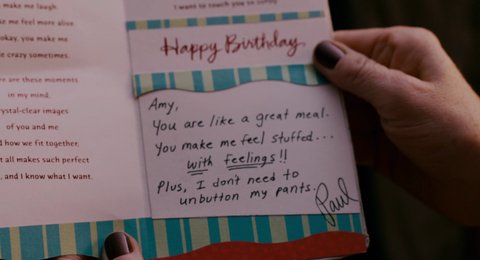 make me laugh.
ke me feel more alive
okay, you make me
le crazy sometimes.
re are these moments
in my mind,
rystal-clear images
of you and me
d how we fit together;
t all makes such perfect
, and I know what I want.
I want to touch you to
Happy Birthday
Amy,
You are like a great meal.
You make me feel stuffed...
with feelings!!
Plus, I don't need to
unbutton my pants.
Paul